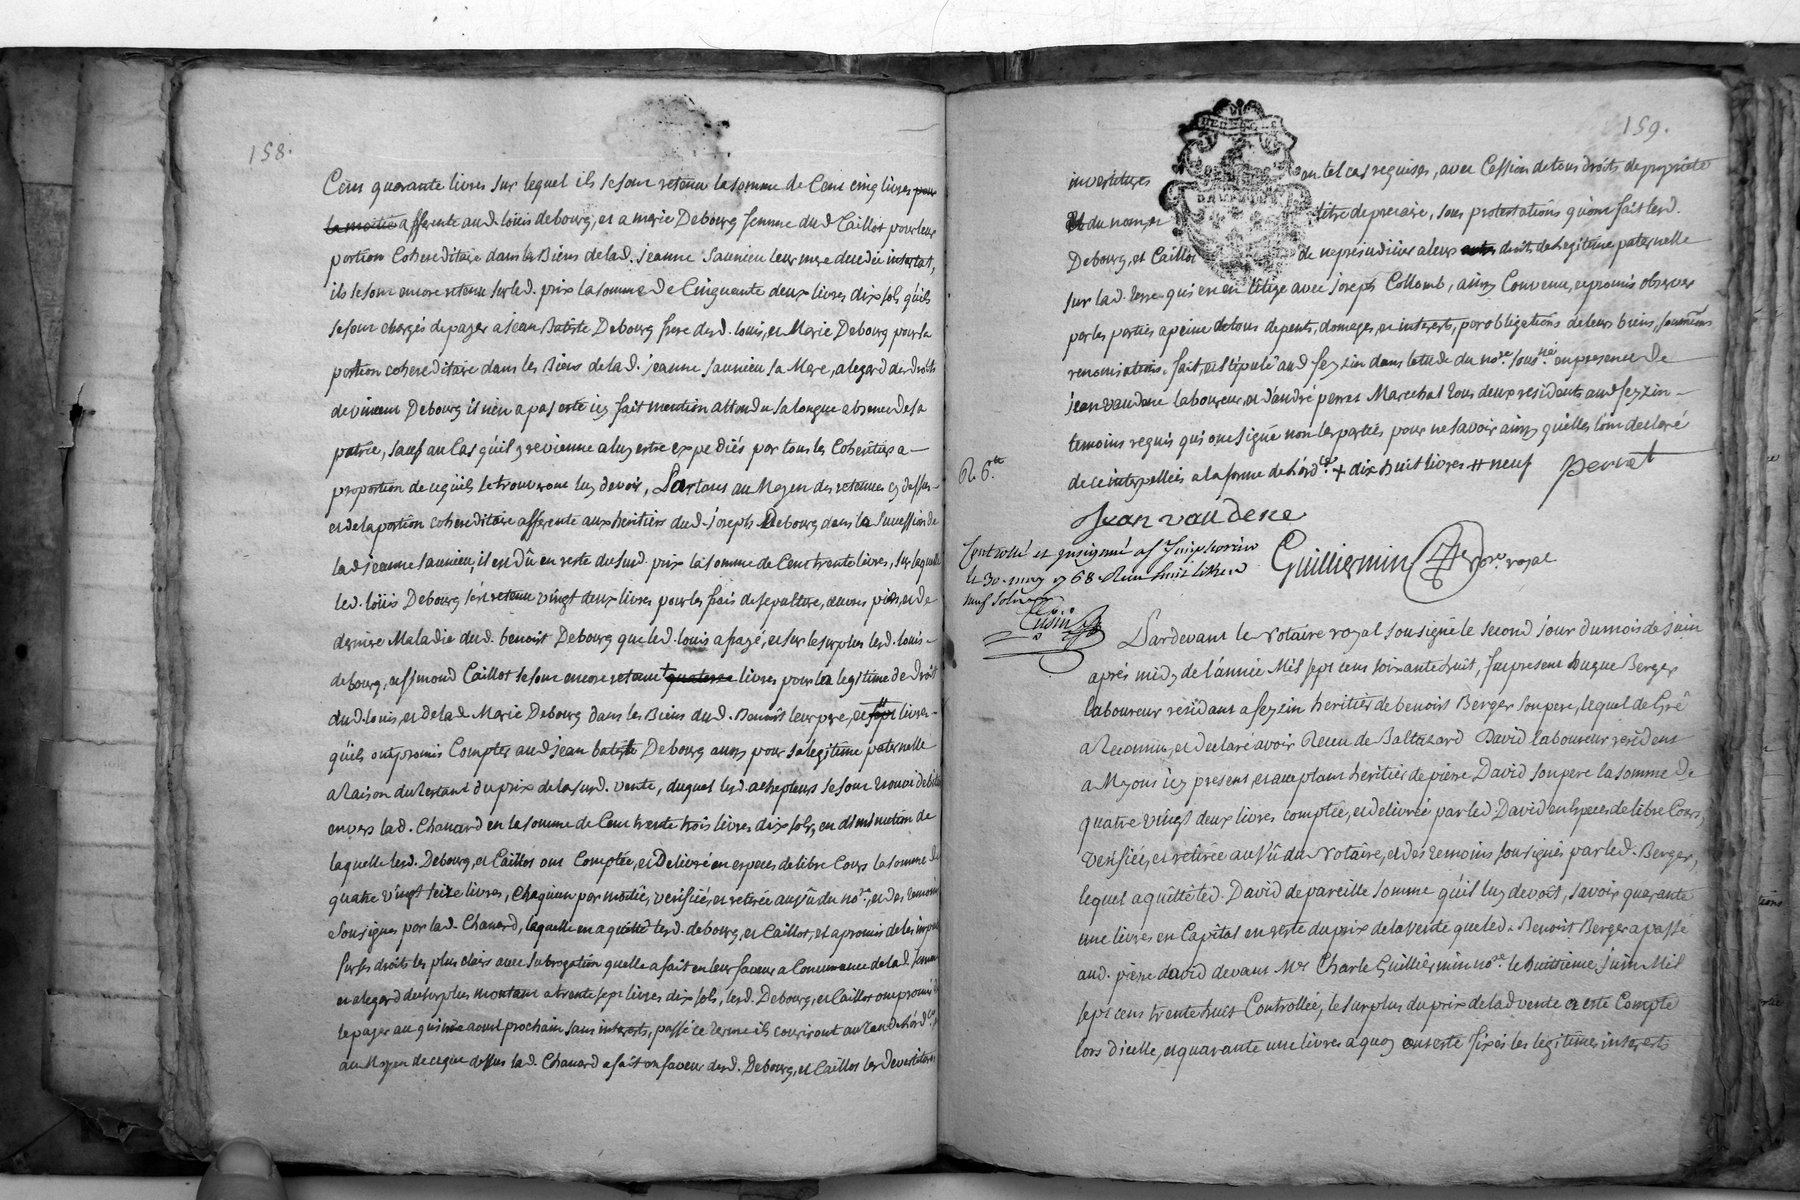 158.
Cent quarante livres sur lequel ils se sont retenu la somme de Cent cinq livres pour
la moitié afferente aud. loüis debourg, et a marie Debourg femme dud Caillot pour leur
portion Cohereditaire dans les Biens de lad. jeanne Saunieu leur mere decedée intestat,
ils se sont encore retenu sur led. prix la somme de Cinquante deux livres dix sols qu'ils
se sont chargés de payer a jean Batiste Debourg frere desd. louis, et Marie Debourg pour sa
portion cohereditaire dans les Biens de lad. jeanne saunieu sa Mere, a legard des droits
de vincent Debourg il n'en a pas esté icy fait mention attendu sa longue absence de sa
patrie, sauf au Cas qu'il y revienne a luy estre expediés par tous les Coheritiers a
proportion de ce qu'ils se trouveront luy devoir, Partant au Moyen des retenues cy dessus
et de la portion cohereditaire afferente aux heritiers dud. joseph Debourg dans la Succession de
lad jeanne saunieu, il en dû en reste du susd. prix la somme de Cent trente livres, sur laquelle
led. loüis Debourg s'est retenu vingt deux livres pour les frais de sepulture, œuvres pies, et de
derniere Maladie dud. benoit Debourg que led. louis a payé, et sur le surplus led. louis
debourg, et simond Caillot se sont encore retenu + quatorze livres pour la legitime de droit
dud. louis, et de lad. Marie Debourg dans les Biens dud. Benoit leur pere, et sept livres
qu'ils ont promis Compter aud jean batiste Debourg aussy pour sa legitime paternelle
a Raison du Restant du prix de la susd. vente, duquel lesd. achepteurs se sont trouvé debiteurs
envers lad. Chanard en la somme de Cent trente trois livres dix sols, en diminution de
laquelle lesd. Debourg, et Caillot ont Comptée, et Delivré en especes de libre Cours la somme de
quatre vingt seize livres, Chaquun par moitié, verifiée, et retirée au vû du no.re, et des temoins
Soussignes par lad. Chanard, laquelle en a quitté lesd. debourg, et Caillot, et a promis de les imputer
sur ses droits les plus clairs avec subrogation quelle a fait en leur faveur a Concurrence de lad. somme
et a legard du surplus montant a trente sept livres dix sols, lesd. Debourg, et Caillot ont promis
le payer au quinze aoust prochain sans interests, passé ce terme ils courront au taux de l'ord.ce
au Moyen de ce que dessus lad. Chanard a fait en faveur desd. Debourg, et Caillot les devestitures
159.
investitures en tel cas requises, avec Cession de tous droits de propriété
Et du nom de titre de precaire, sous protestations qu'ont fait lesd.
Debourg, et Caillot de ne prejudicier a leurs droits de legitime paternelle
sur lad. terre qui est en litige avec joseph Collomb, ainsy Convenu, et promis observer
par les parties a peine de tous depents, domages, et interests, par obligations de leurs biens, soumissions
renonciations. fait, et stipulé aud feyzin dans letude du no.re sous.né en presence de
jean vandene laboureur, et d'andré perret Marechal tous deux residents aud feyzin
temoins requis qui ont signé non les parties pour ne savoir ainsy qu'elles l'ont declaré
de ce interpellées a la forme de l'ord.ce + dix huit livres # neuf
perret
Jean vandene
Guilliermin no.re royal
Controllé et insinué a s.t Simphorien
le 30. may 1768
neuf sols
Cusin
Pardevant le Notaire royal soussigné le second jour du mois de juin
aprés midy de l'année Mil sept cens soixante huit, fut present hugue Berger
laboureur résidant a feyzin heritier de benoist Berger son pere, lequel de Gré
a Reconnu, et declaré avoir Reçeu de Baltazard David laboureur resident
a Myons icy present, et acceptant heritier de pierre David son pere la somme de
quatre vingt deux livres comptée, et delivrée par led. David en Especes de libre Cours,
verifiée, et retirée au vû du Notaire, et des temoins soussignés par led. Berger,
lequel a quitté led. David de pareille somme qu'il luy devoit, savoir quarante
une livres en Capital en reste du prix de la vente que led. Benoist Berger a passé
aud. pierre david devant M.re Charle Guilliermin no.re le huittieme juin Mil
sept cens trente huit Controllée, le surplus du prix de lad vente a esté Compté
lors d'icelle, et quarante une livres a quoy ont esté fixés les legitimes interests